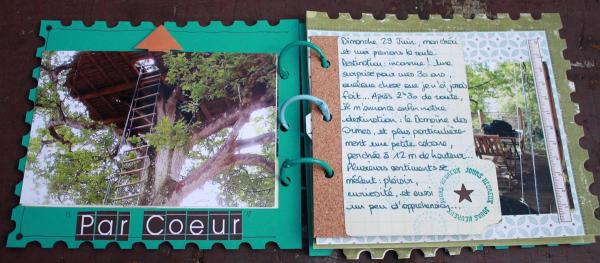 " Par Coeur "
Dimanche 29 Juin, mon chéri
et moi prenons la route.
Destination : inconnue ! Une
surprise pour mes 30 ans,
quelque chose que je n'ai jamais
fait... Après 2h30 de route,
il m'annonce enfin notre
destination : le Domaine des
Ormes, et plus particulière-
ment une petite cabane,
perchée à 12 m de hauteur...
Plusieurs sentiments se
mêlent : plaisir,
curiosité, et aussi
un peu d'appréhension...
JOURS HEUREUX